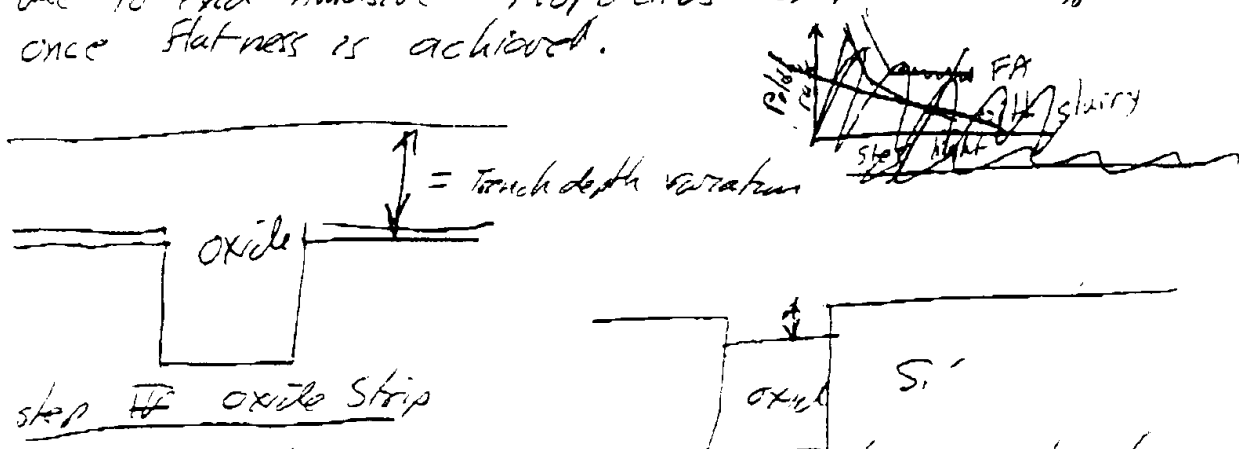 once flatness is achieved.
Polish rate
FA
slurry
step hight
= Trench depth variation
oxide
Si
oxid
step IV oxide Strip